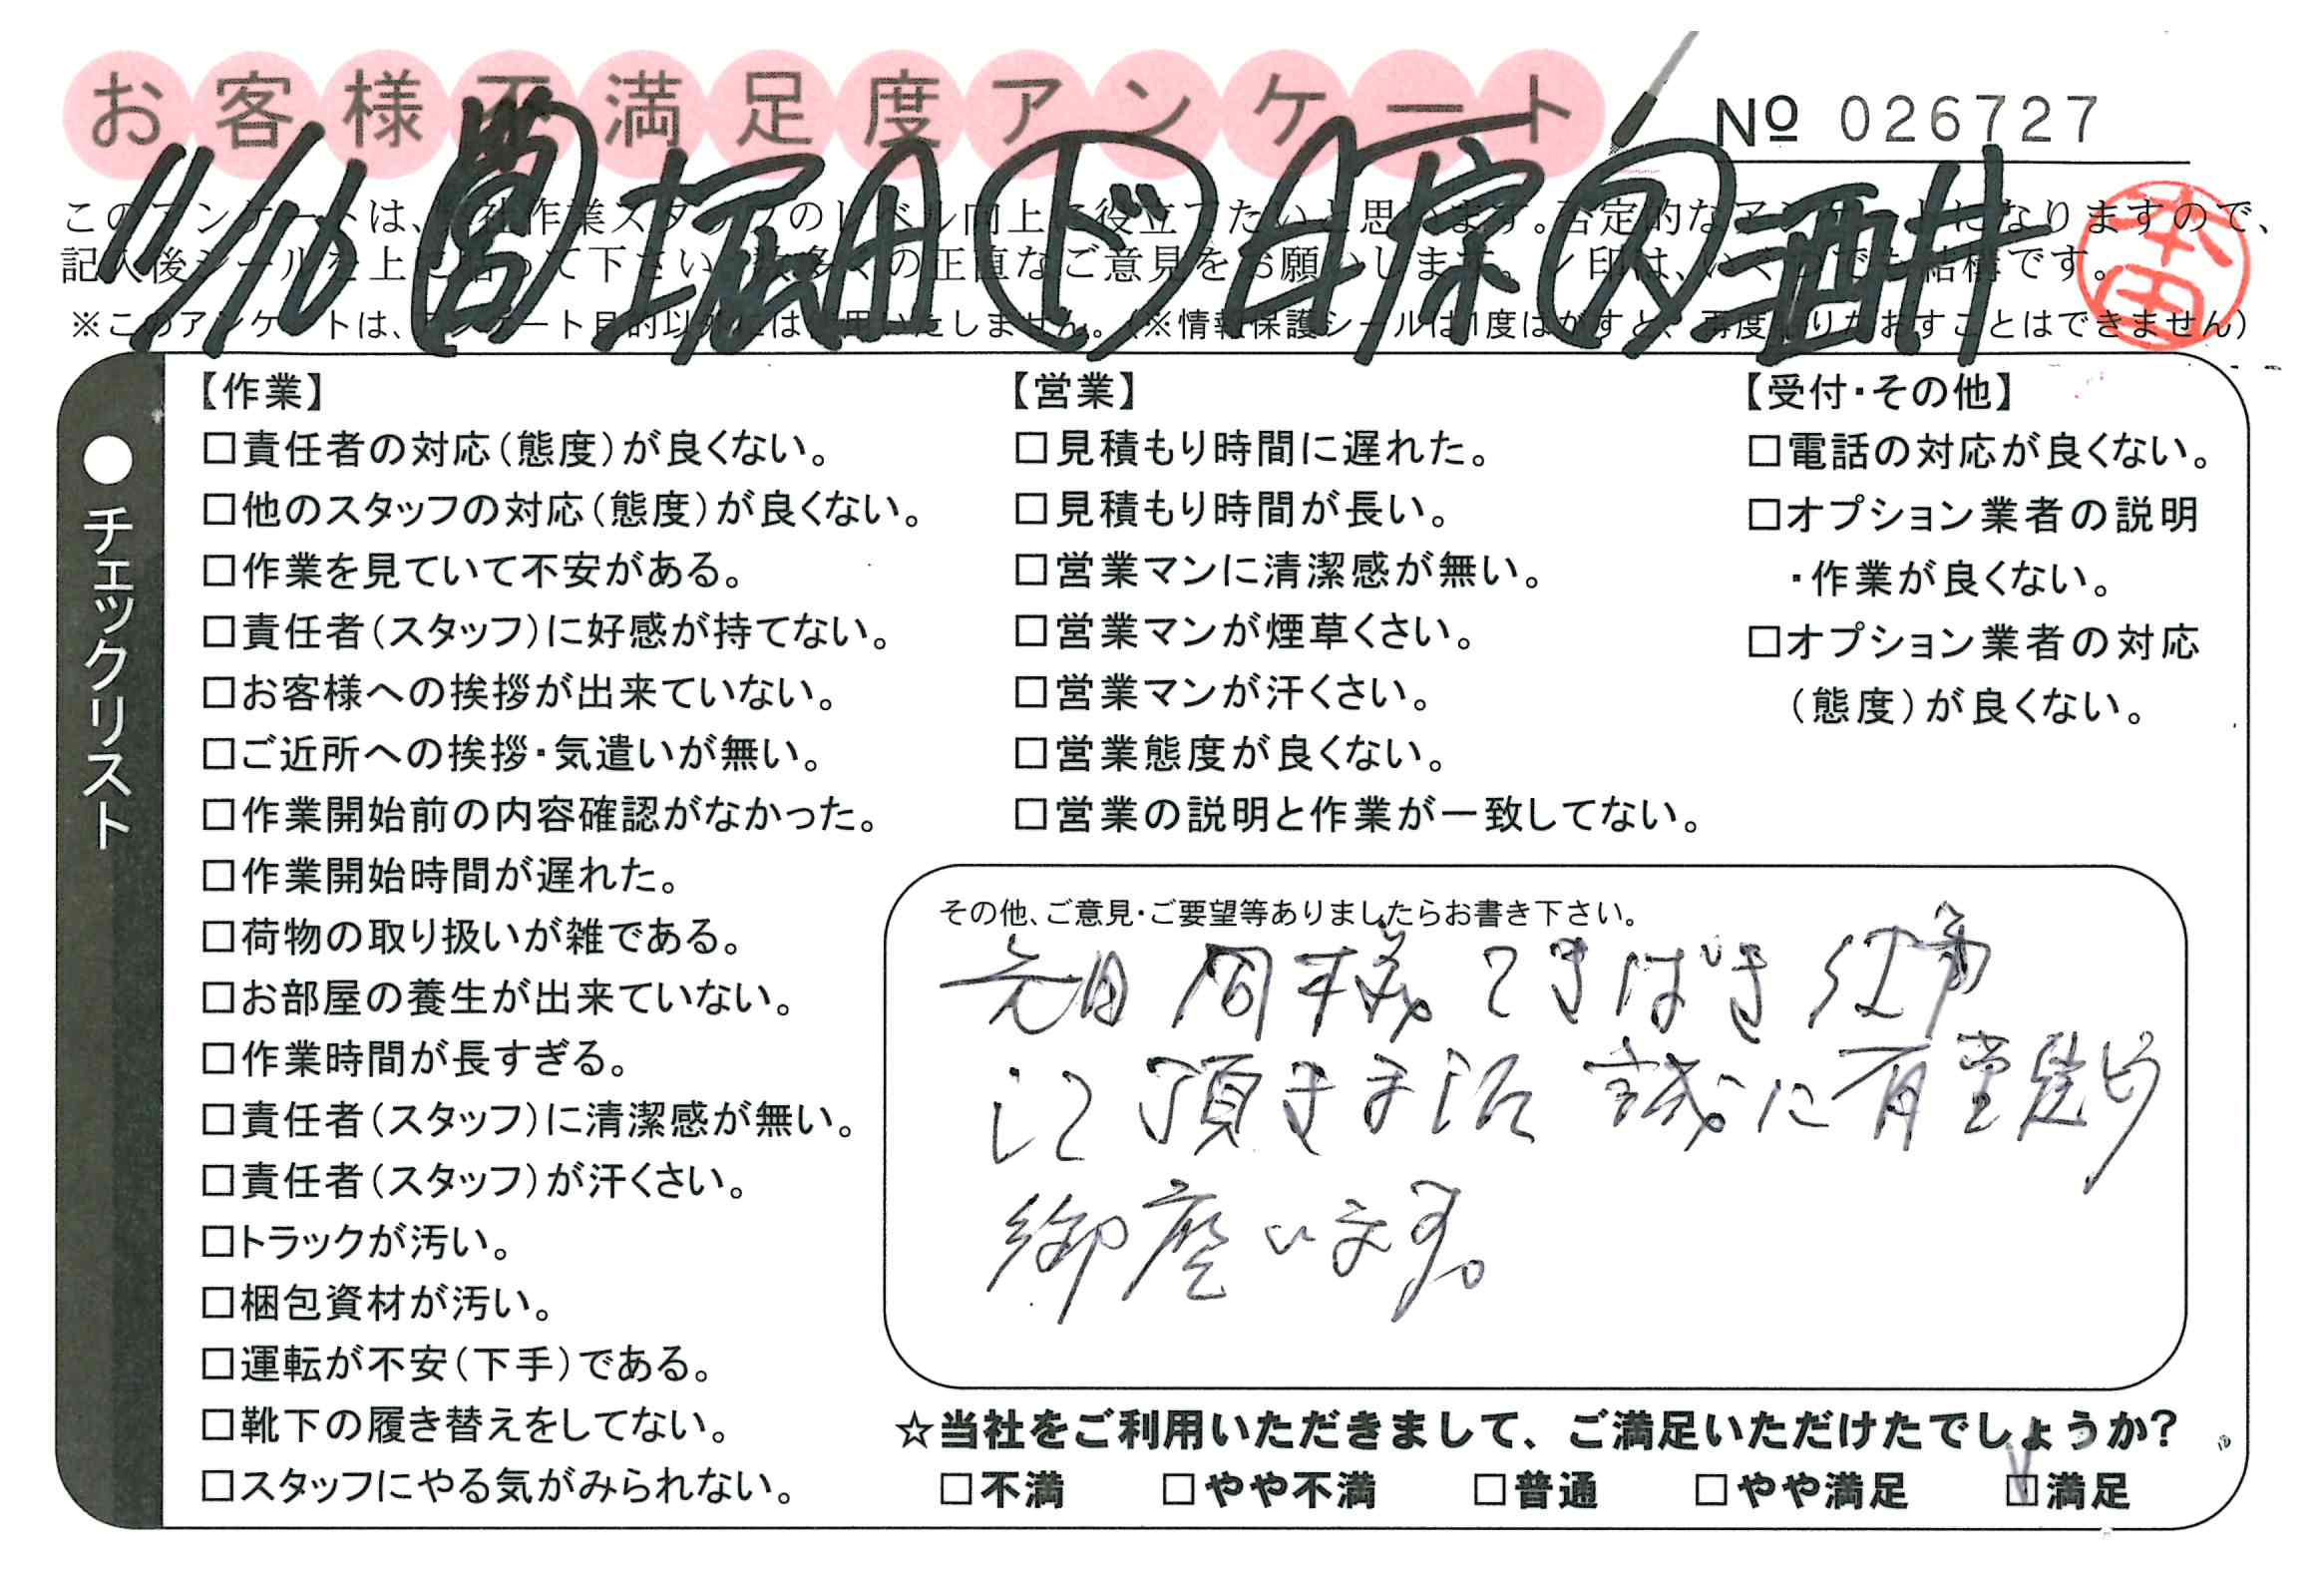 お客様不満足度アンケート
№ 026727
11/16 営 堀田 ド 日宗 ス 酒井
本田
このアンケートは、当社作業スタッフのレベル向上に役立てたいと思います。否定的なアンケートになりますので、
記入後シールを上に貼って下さい。数多くの正直なご意見をお願いします。レ印は、いくつでも結構です。
※このアンケートは、アンケート目的以外には使用いたしません。(※情報保護シールは1度はがすと、再度貼りなおすことはできません)
●チェックリスト
【作業】
□責任者の対応(態度)が良くない。
□他のスタッフの対応(態度)が良くない。
□作業を見ていて不安がある。
□責任者(スタッフ)に好感が持てない。
□お客様への挨拶が出来ていない。
□ご近所への挨拶・気遣いが無い。
□作業開始前の内容確認がなかった。
□作業開始時間が遅れた。
□荷物の取り扱いが雑である。
□お部屋の養生が出来ていない。
□作業時間が長すぎる。
□責任者(スタッフ)に清潔感が無い。
□責任者(スタッフ)が汗くさい。
□トラックが汚い。
□梱包資材が汚い。
□運転が不安(下手)である。
□靴下の履き替えをしてない。
□スタッフにやる気がみられない。
【営業】
□見積もり時間に遅れた。
□見積もり時間が長い。
□営業マンに清潔感が無い。
□営業マンが煙草くさい。
□営業マンが汗くさい。
□営業態度が良くない。
□営業の説明と作業が一致してない。
【受付・その他】
□電話の対応が良くない。
□オプション業者の説明
・作業が良くない。
□オプション業者の対応
(態度)が良くない。
その他、ご意見・ご要望等ありましたらお書き下さい。
先日同様てきぱき仕事
して頂きまして 誠に有難う
御座います。
☆当社をご利用いただきまして、ご満足いただけたでしょうか?
□不満 □やや不満 □普通 □やや満足 ☑満足